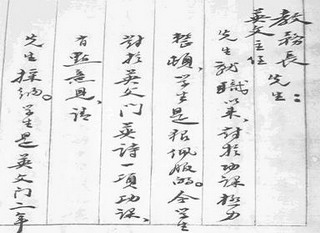 教務長
英文主任
先生：
先生就職以来，對於功課極力
整頓，学生是狠佩服的。今学生
對於英文门英詩一項功課，
有點意見，請
先生採納。学生是英文门二年